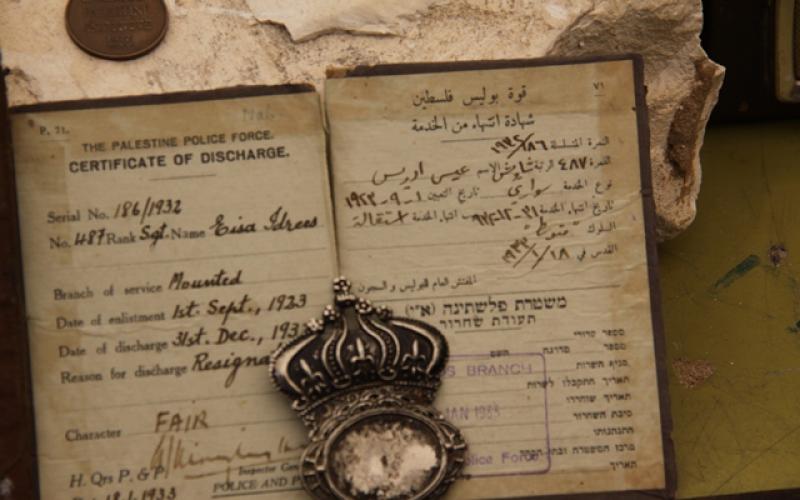 P. 71.
THE PALESTINE POLICE FORCE.
CERTIFICATE OF DISCHARGE.
Serial No. 186/1932
No. 487 Rank Sgt. Name Eisa Idrees
Branch of service Mounted
Date of enlistment 1st. Sept., 1923
Date of discharge 31st. Dec., 193
Reason for discharge Resigna
Character FAIR
H. Qrs P. & P.
Inspector Gen
POLICE AND P
18.1.1933
٧١
قوة بوليس فلسطين
شهادة انتهاء من الخدمة
النمرة المتسلسلة ١٨٦/١٩٣٢
النمرة ٤٨٧ الرتبة شاويش الاسم عيسى ادريس
نوع الخدمة سواري تاريخ التعيين ١-٩-١٩٢٣
تاريخ انتهاء الخدمة ٣١-١٢-٩٣٢ انتهاء الخدمة استقالة
السلوك متوسط
القدس في ١٨/١/١٩٣٣
المفتش العام للبوليس و السجون
משטרת פלשתינה (א״י)
תעודת שחרור
מספר סדורי
מספר דרגה השם
מניף השרות
תאריך התקבלו לשרות
תאריך שחרורו
סיבת השחרור
התנהגותו
מרכז המשטרה ובתי הסהר
תאריך
S BRANCH
JAN 1933
olice Force